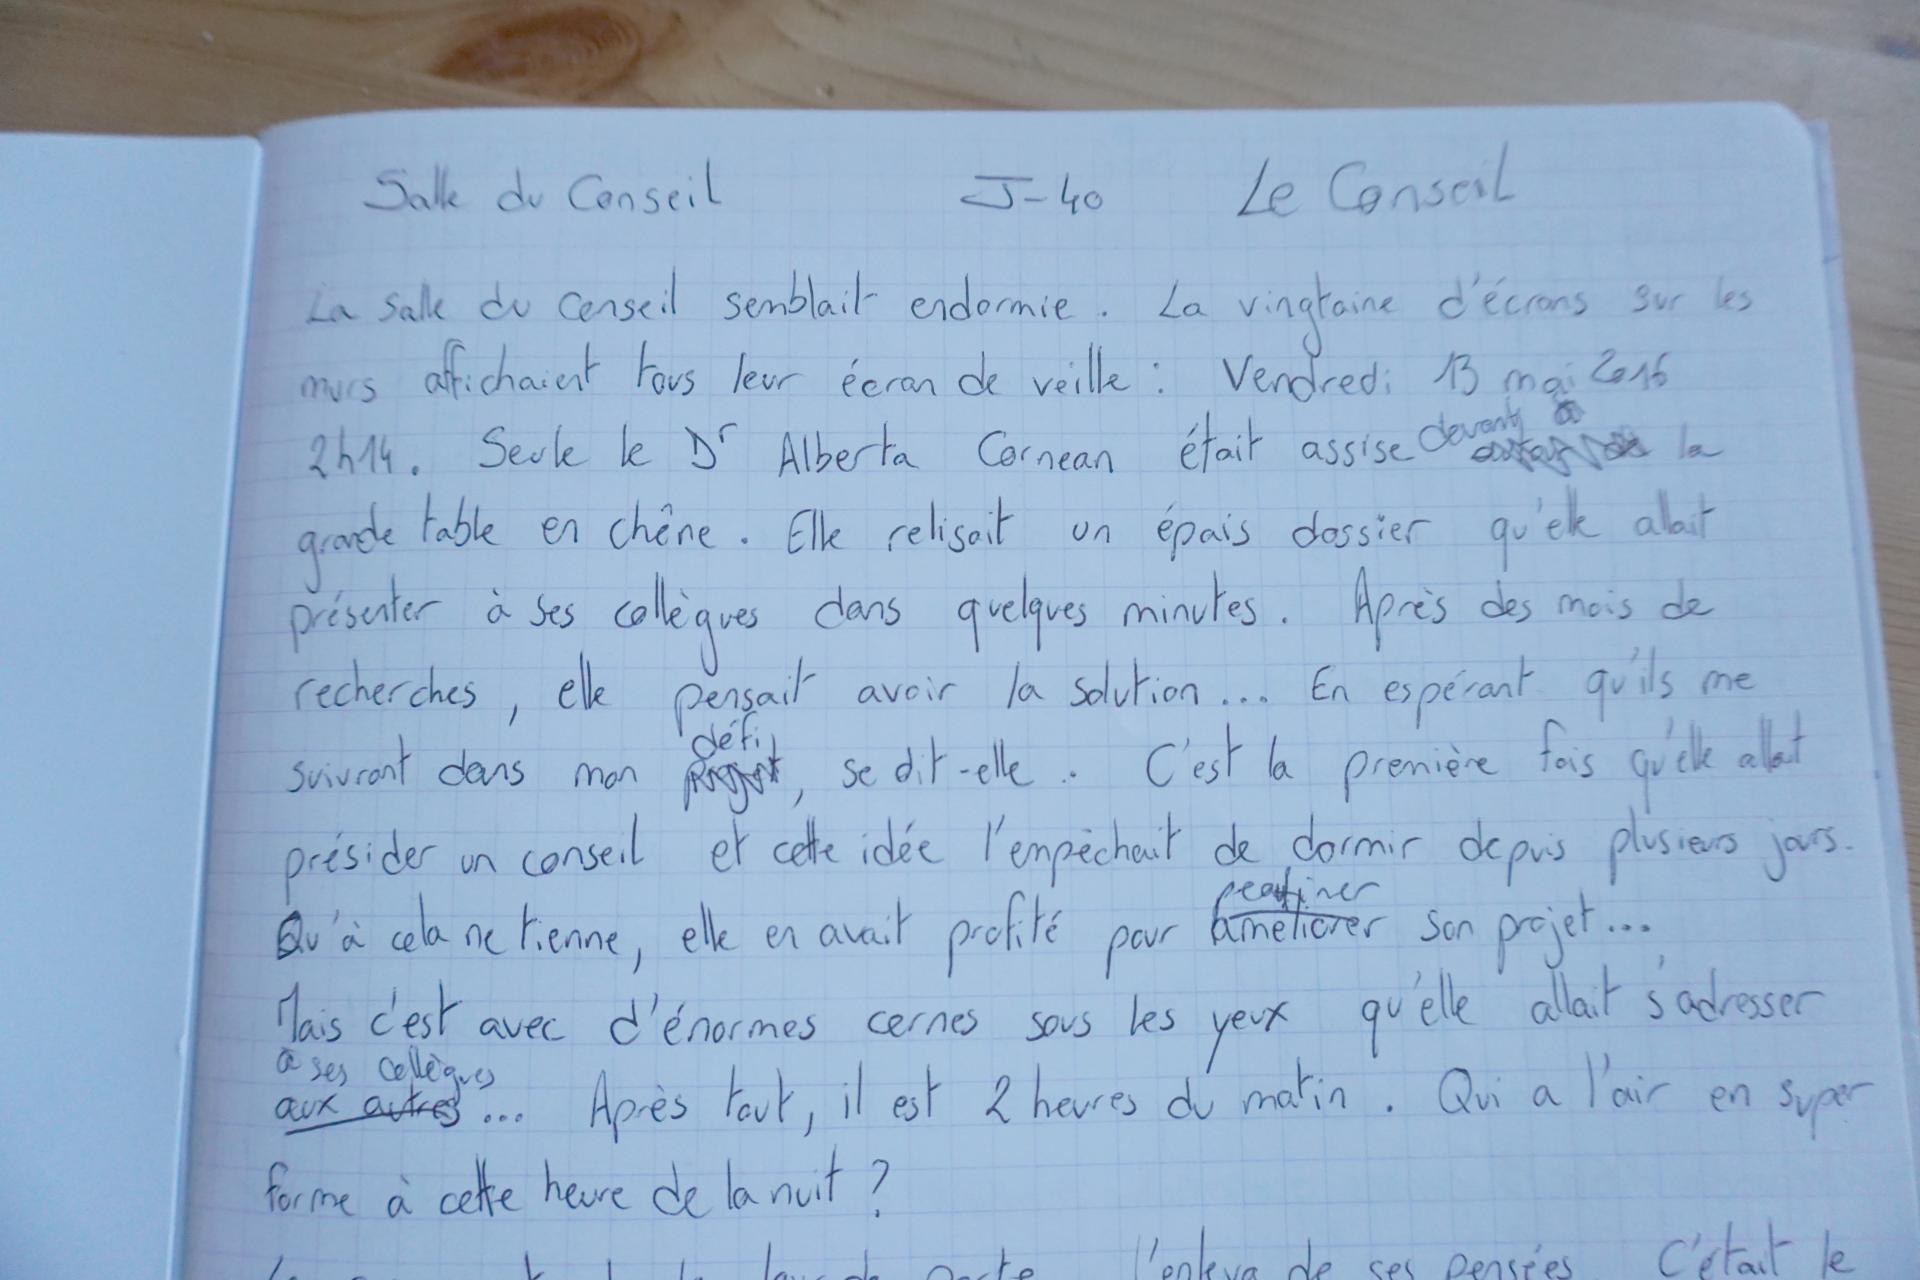 Salle du Conseil J-40 Le Conseil
La salle du conseil semblait endormie. La vingtaine d'écrans sur les
murs affichaient tous leur écran de veille : Vendredi 13 mai 2016
2h14. Seule le Dr Alberta Cornean était assise devant la
grande table en chêne. Elle relisait un épais dossier qu'elle allait
présenter à ses collègues dans quelques minutes. Après des mois de
recherches, elle pensait avoir la solution... En espérant qu'ils me
défi
suivront dans mon projet, se dit-elle. C'est la première fois qu'elle allait
présider un conseil et cette idée l'empêchait de dormir depuis plusieurs jours.
peaufiner
Qu'à cela ne tienne, elle en avait profité pour améliorer son projet...
Mais c'est avec d'énormes cernes sous les yeux qu'elle allait s'adresser
à ses collègues
aux autres... Après tout, il est 2 heures du matin. Qui a l'air en super
forme à cette heure de la nuit ?
l'enleva de ses pensées C'était le